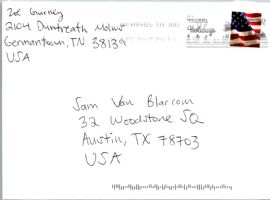 Zoe Gurney
2104 Duntreath
Germantown, TN 38139
USA
Happy
Holidays
Sam Van Blarcom
32 Woodstone SQ
Austin, TX 78703
USA